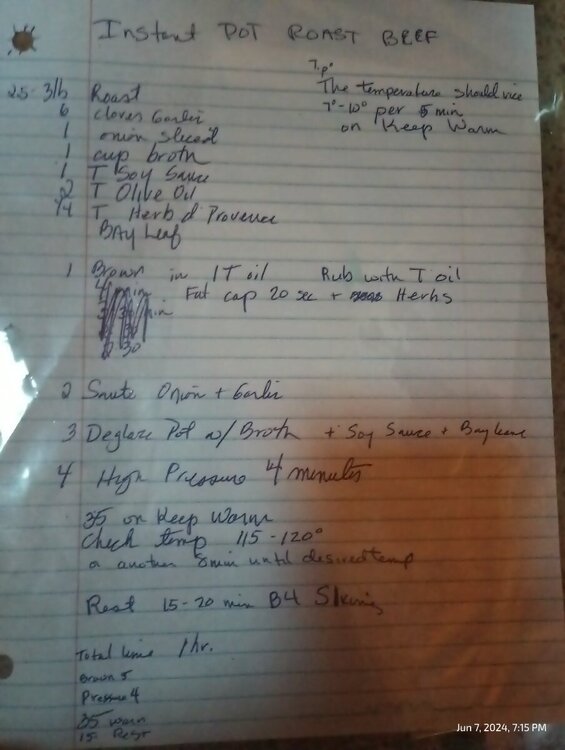 Instant POT ROAST BEEF
Tip
The temperature should rice
7°-10° per 5 min
on Keep Warm
25-3lb Roast
6 cloves Garlic
1 onion sliced
1 cup broth
1 T Soy Sauce
2 T Olive Oil
T Herb d Provence
BAy Leaf
1 Brown in 1 T oil Rub with T oil
Fat cap 20 sec + Herbs
2 Saute Onion + Garlic
3 Deglaze Pot w/ Broth + Soy Sauce + Bay leave
4 High Pressure 4 minutes
35 on Keep Warm
Check temp 115-120°
or another 5min until desired temp
Rest 15-20 min B4 Slicing
Total time 1 hr.
Brown 5
Pressure 4
35 warm
15 Rest
Jun 7, 2024, 7:15 PM